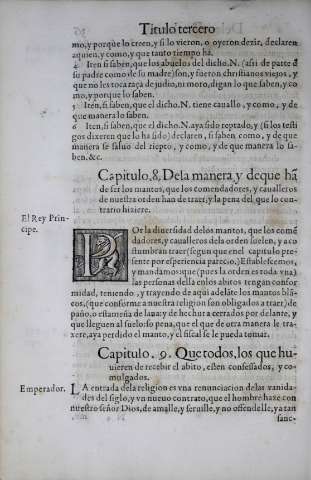 Titulo tercero
mo, y porque lo creen, y si lo vieron, o oyeron dezir, declaren
aquien, y como, y que tanto tiempo ha.
4 Iten si saben, que los abuelos del dicho. N. (assi de parte d̃
su padre como de su madre) son, y fueron christianos viejos, y
que no les toca raça de judio, ni moro, digan lo que saben, y co
mo, y porque lo saben.
5 Itẽn, si saben, que el dicho. N. tiene cauallo, y como, y de
que manera lo saben.
6 Iten si saben, que el dicho. N. aya sido reptado, y (si los testi
gos dixeren que lo ha sido) declaren, si saben como, y de que
manera se saluo del riepto, y como, y de que manera lo sa-
ben. &c.
Capitulo. 8. De la manera y de que hã
de ser los mantos, que los comendadores, y caualleros
de nuestra orden han de traer, y la pena del que lo con-
trario hiziere.
El Rey Prin-
cipe.
POr la diuersidad delos mantos, que los comẽ
dadores, y caualleros dela orden suelen, y aco
stumbran traer (segun que enel capitulo pre-
sente por esperiencia parecio,) Establescemos,
y mandamos: que (pues la orden es toda vna)
las personas della enlos abitos tengan confor
midad, teniendo, y trayendo de aqui adelãte los mantos blã-
cos, (que conforme a nuestra religion son obligados a traer) de
paño, o estameña de lana: y de hechura cerrados por delante, y
que lleguen al suelo: so pena, que el que de otra manera le tra-
xere, aya perdido el manto, y el fiscal se le pueda tomar.
Capitulo. 9. Que todos, los que hu-
uieren de recebir el abito, esten confessados, y co-
mulgados.
Emperador.
LA entrada dela religion es vna renunciacion delas vanida-
des del siglo, y vn nueuo contrato, que el hombre haze con
nuestro señor Dios, de amalle, y seruille, y no offendelle, ya tan
sanc-